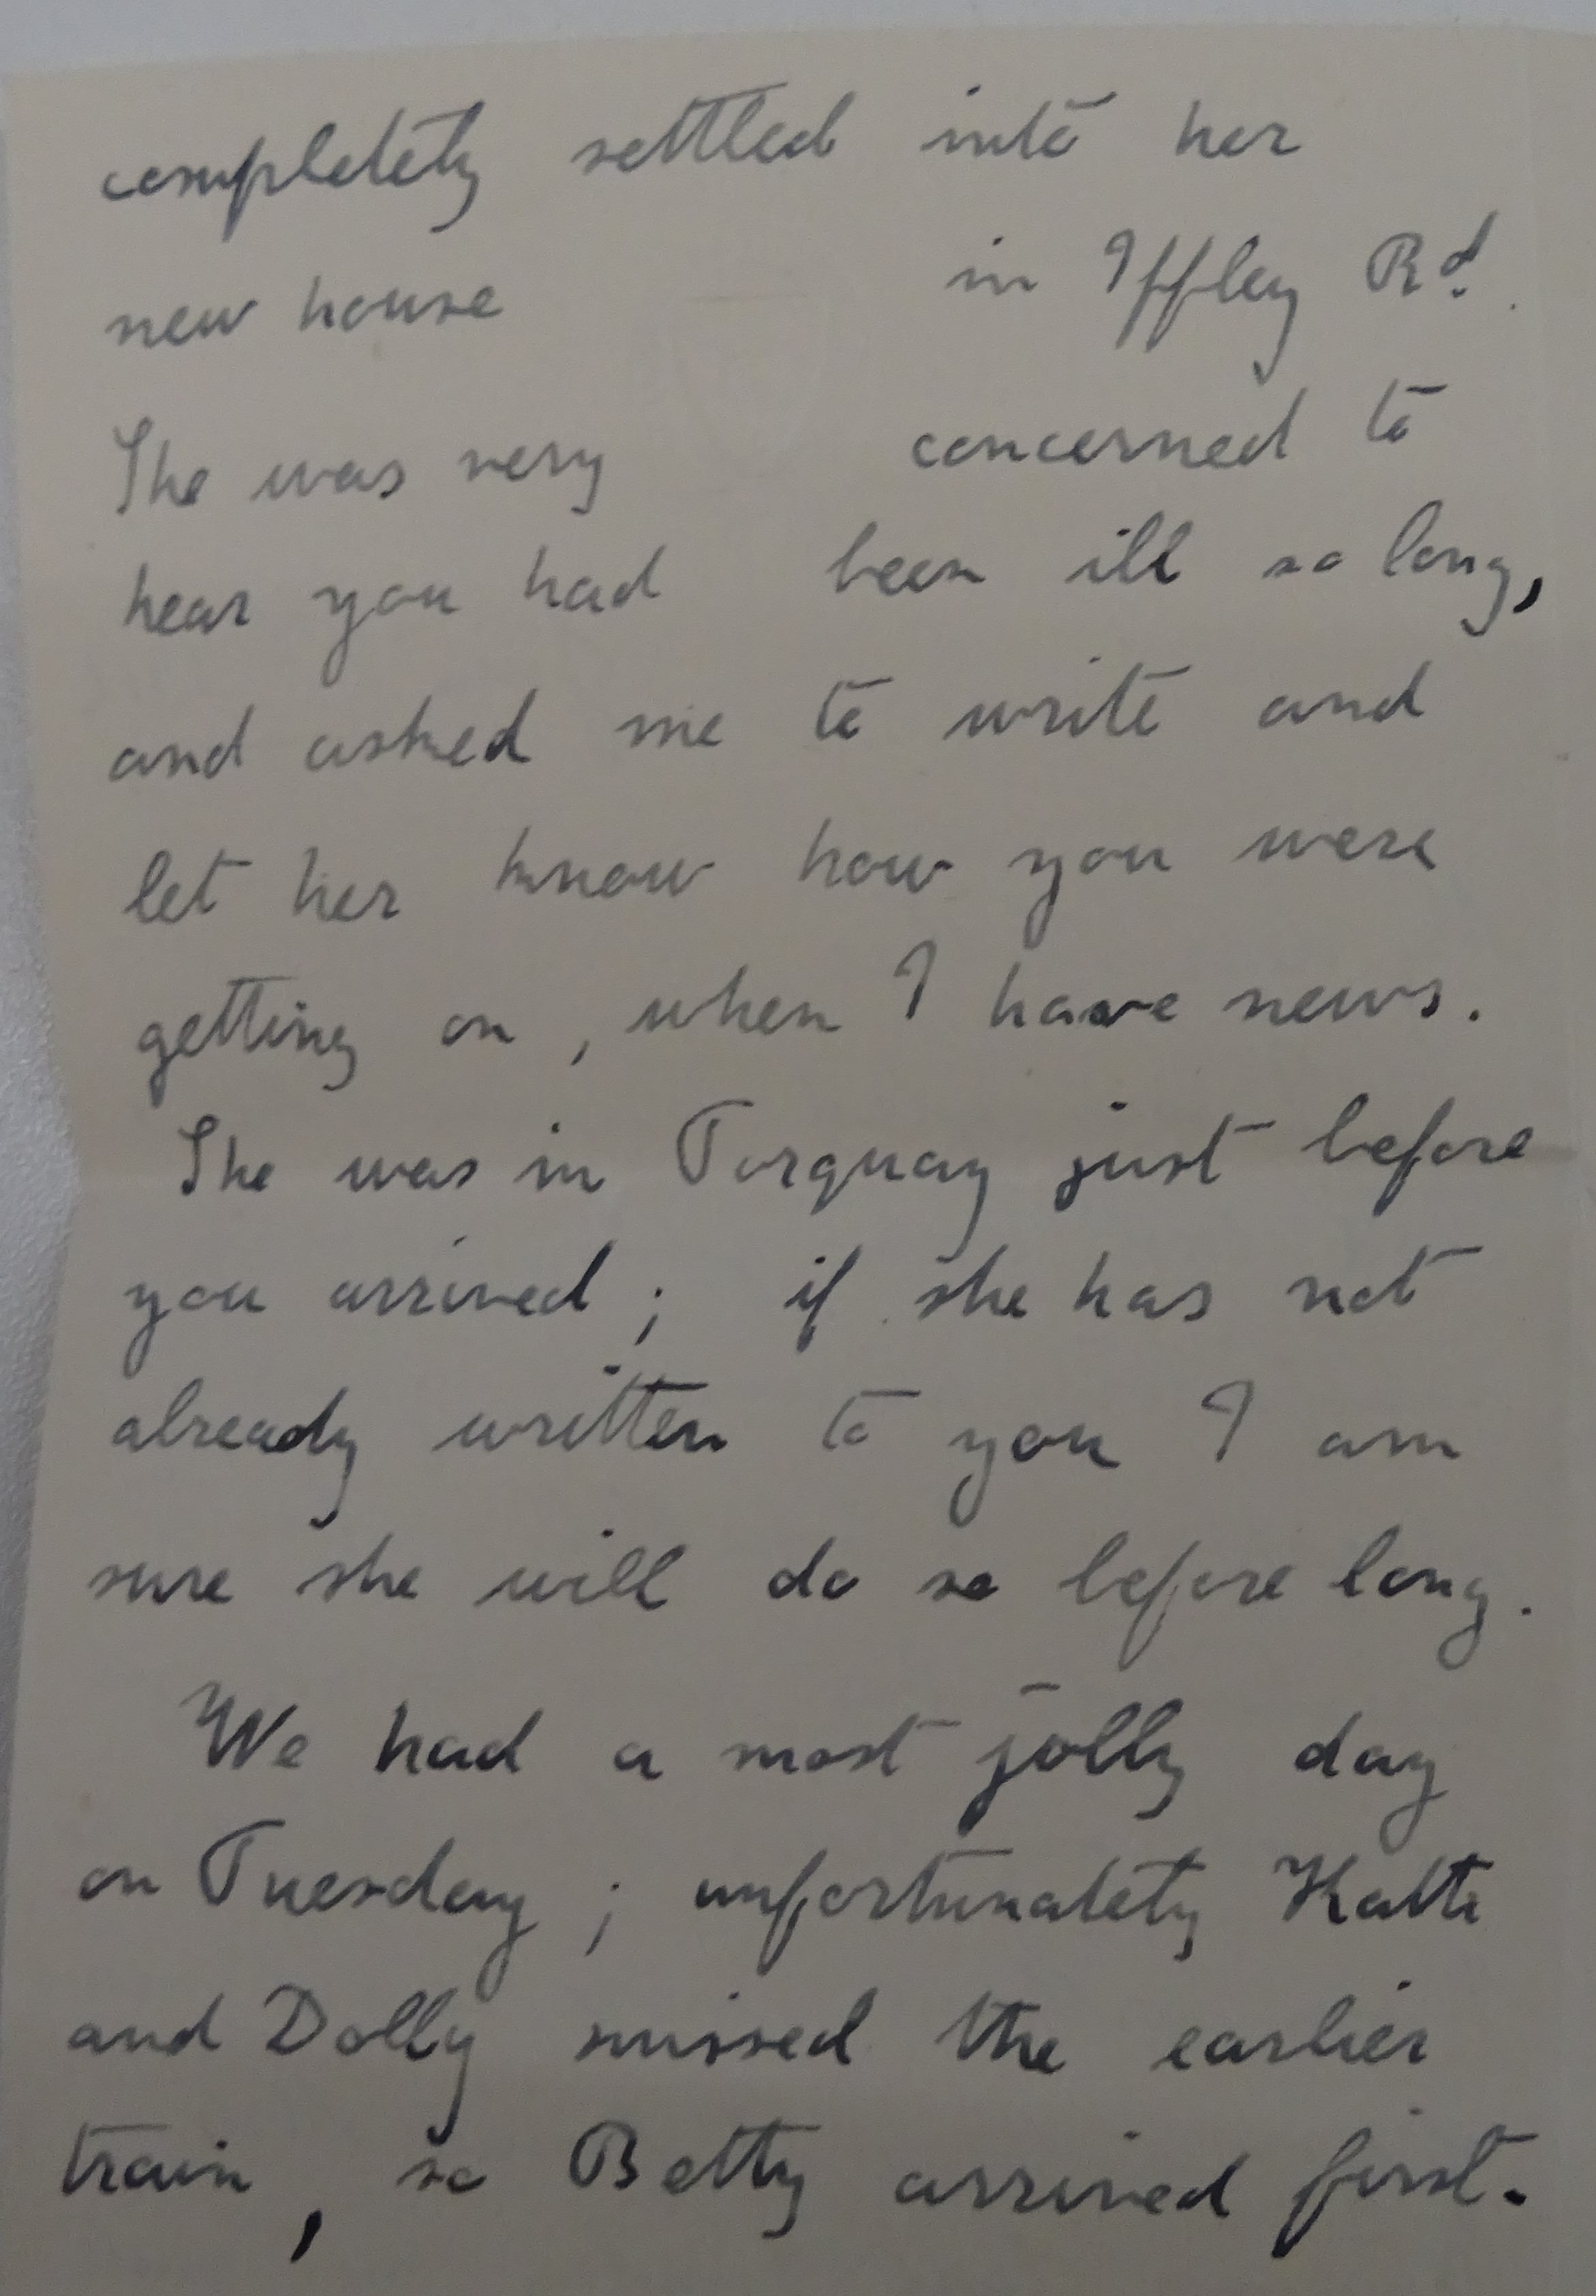 completely settled into her
new house in Iffley Rd.
She was very concerned to
hear you had been ill so long,
and asked me to write and
let her know how you were
getting on, when I have news.
She was in Torquay just before
you arrived; if she has not
already written to you I am
sure she will do so before long.
We had a most jolly day
on Tuesday; unfortunately
and Dolly missed the earlier
train, so Betty arrived first.